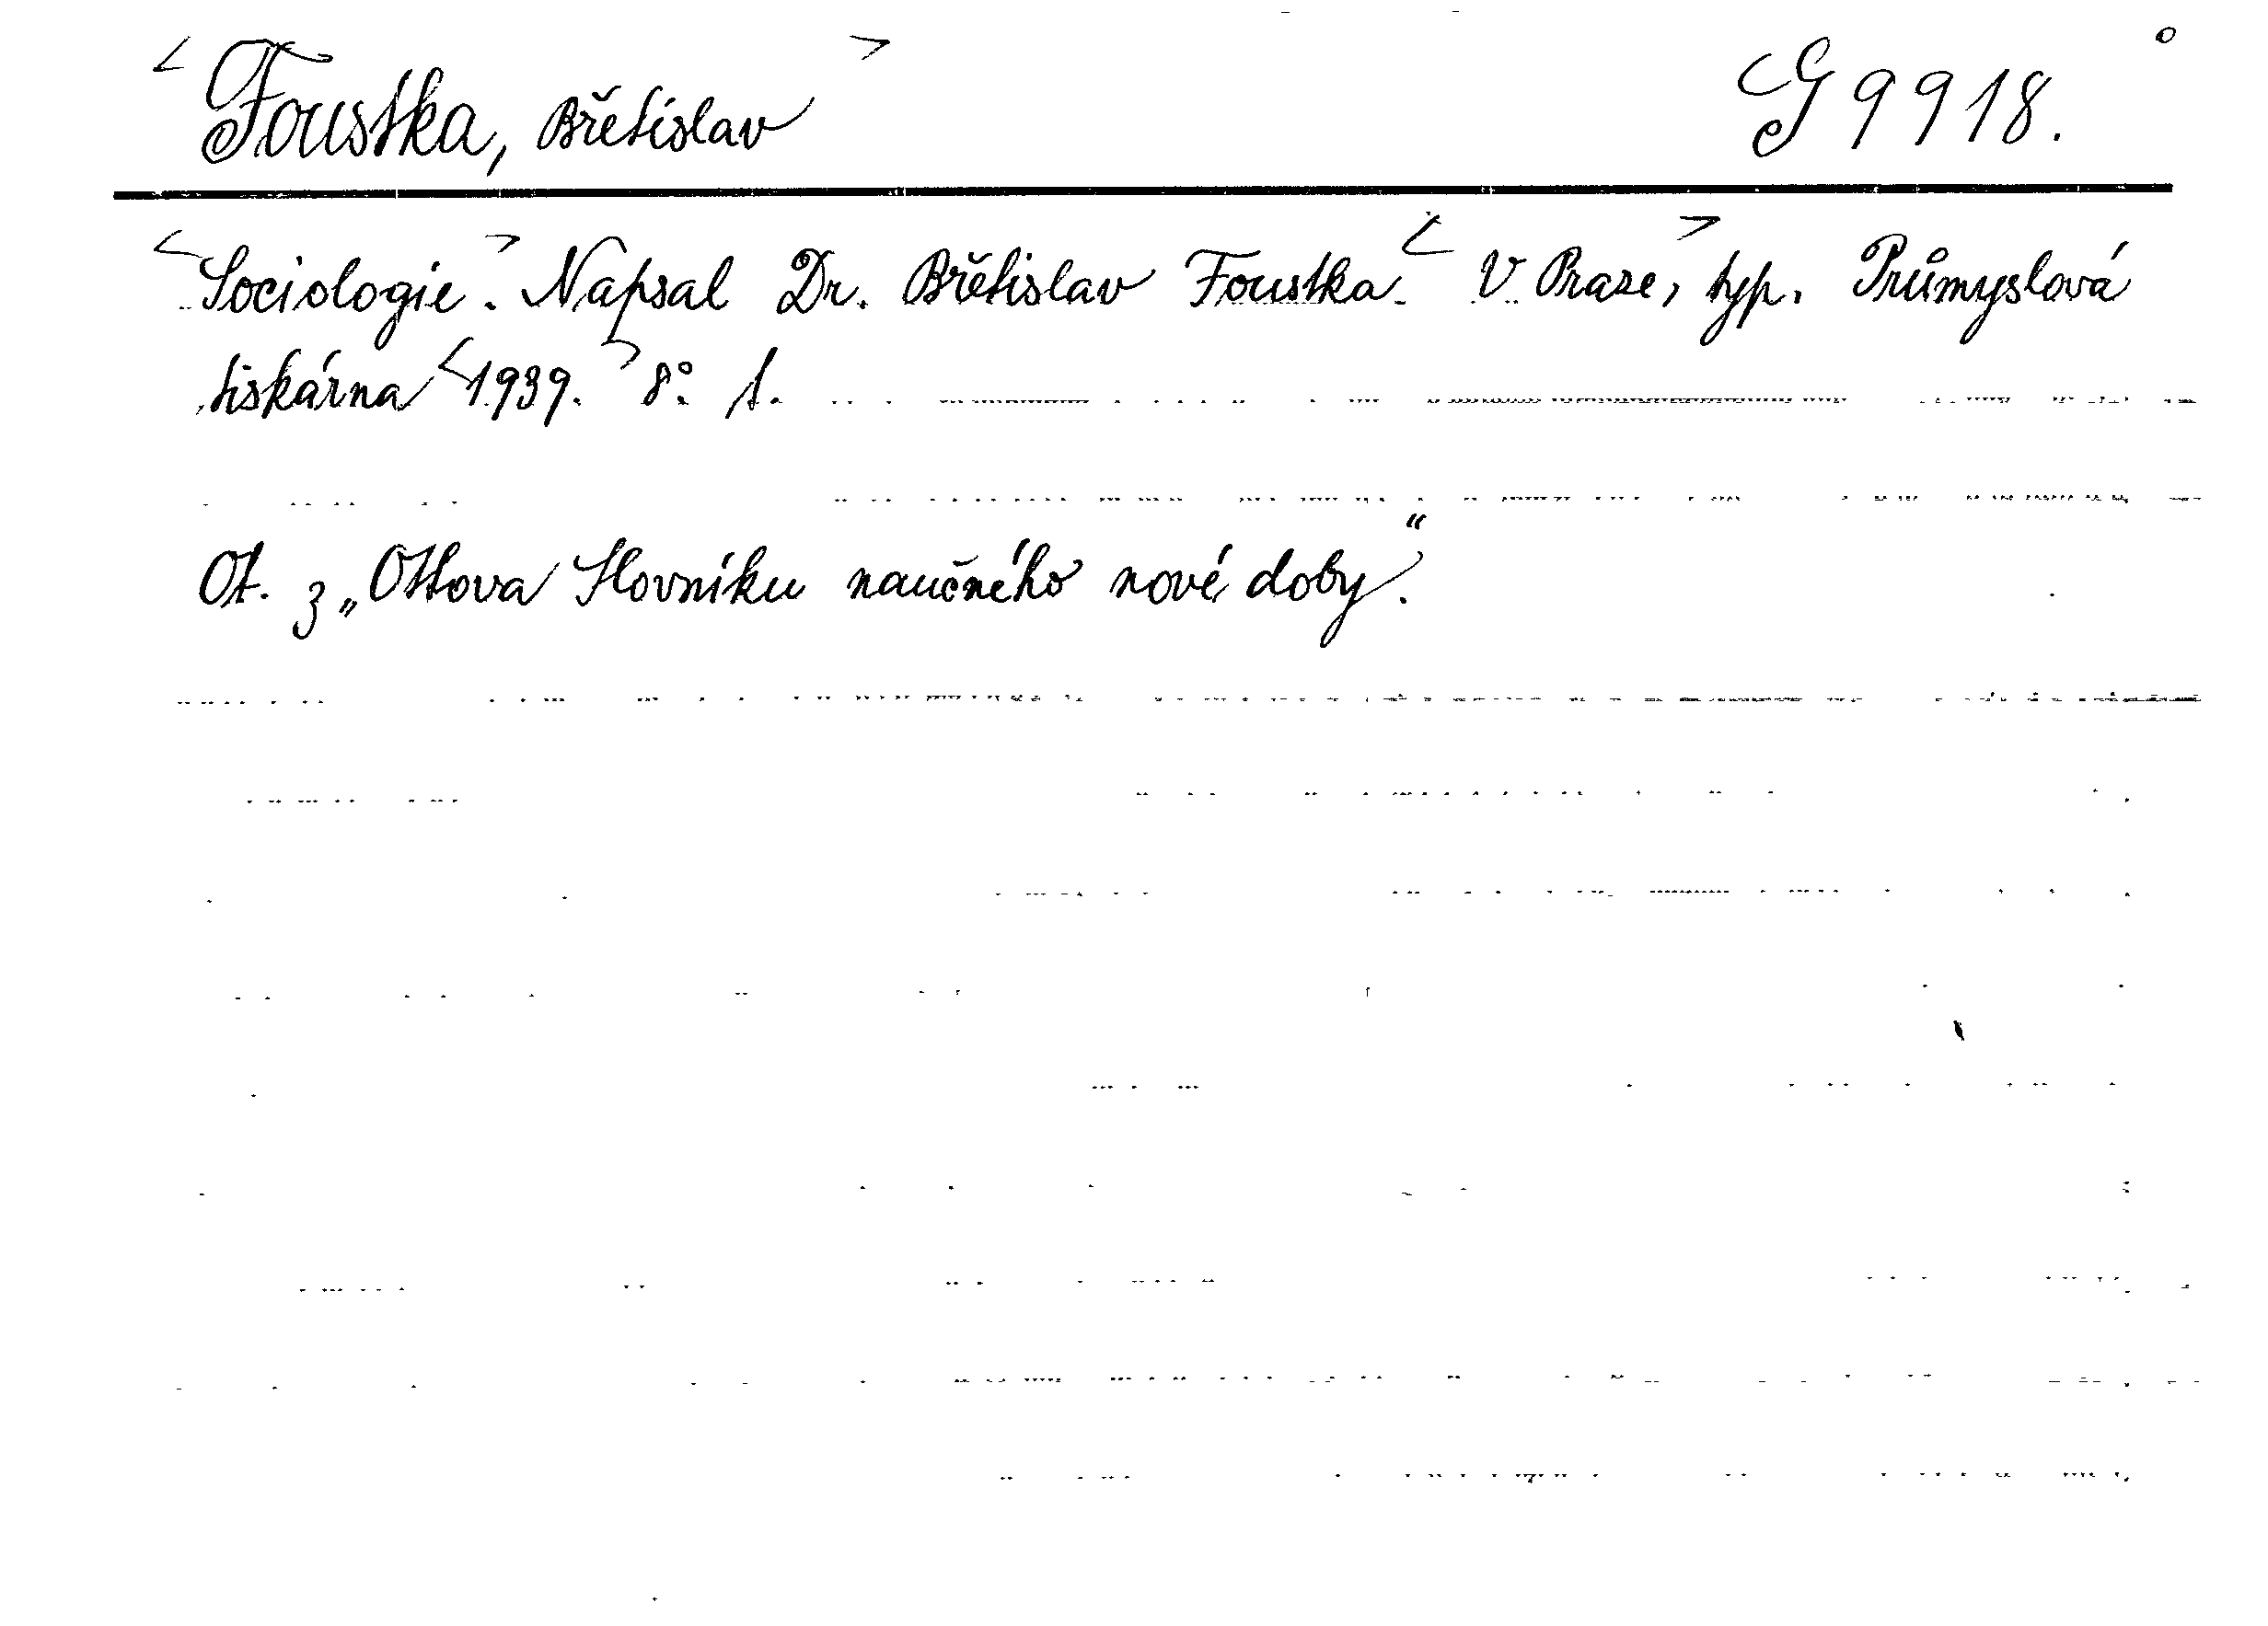 <Foustka, Břetislav> G 9918.
<Sociologie.> Napsal Dr. Břetislav Foustka. <V Praze,> typ. Průmyslová
tiskárna <1939.> 8° 1.
Ot. z „Ottova Slovníku naučného nové doby.“